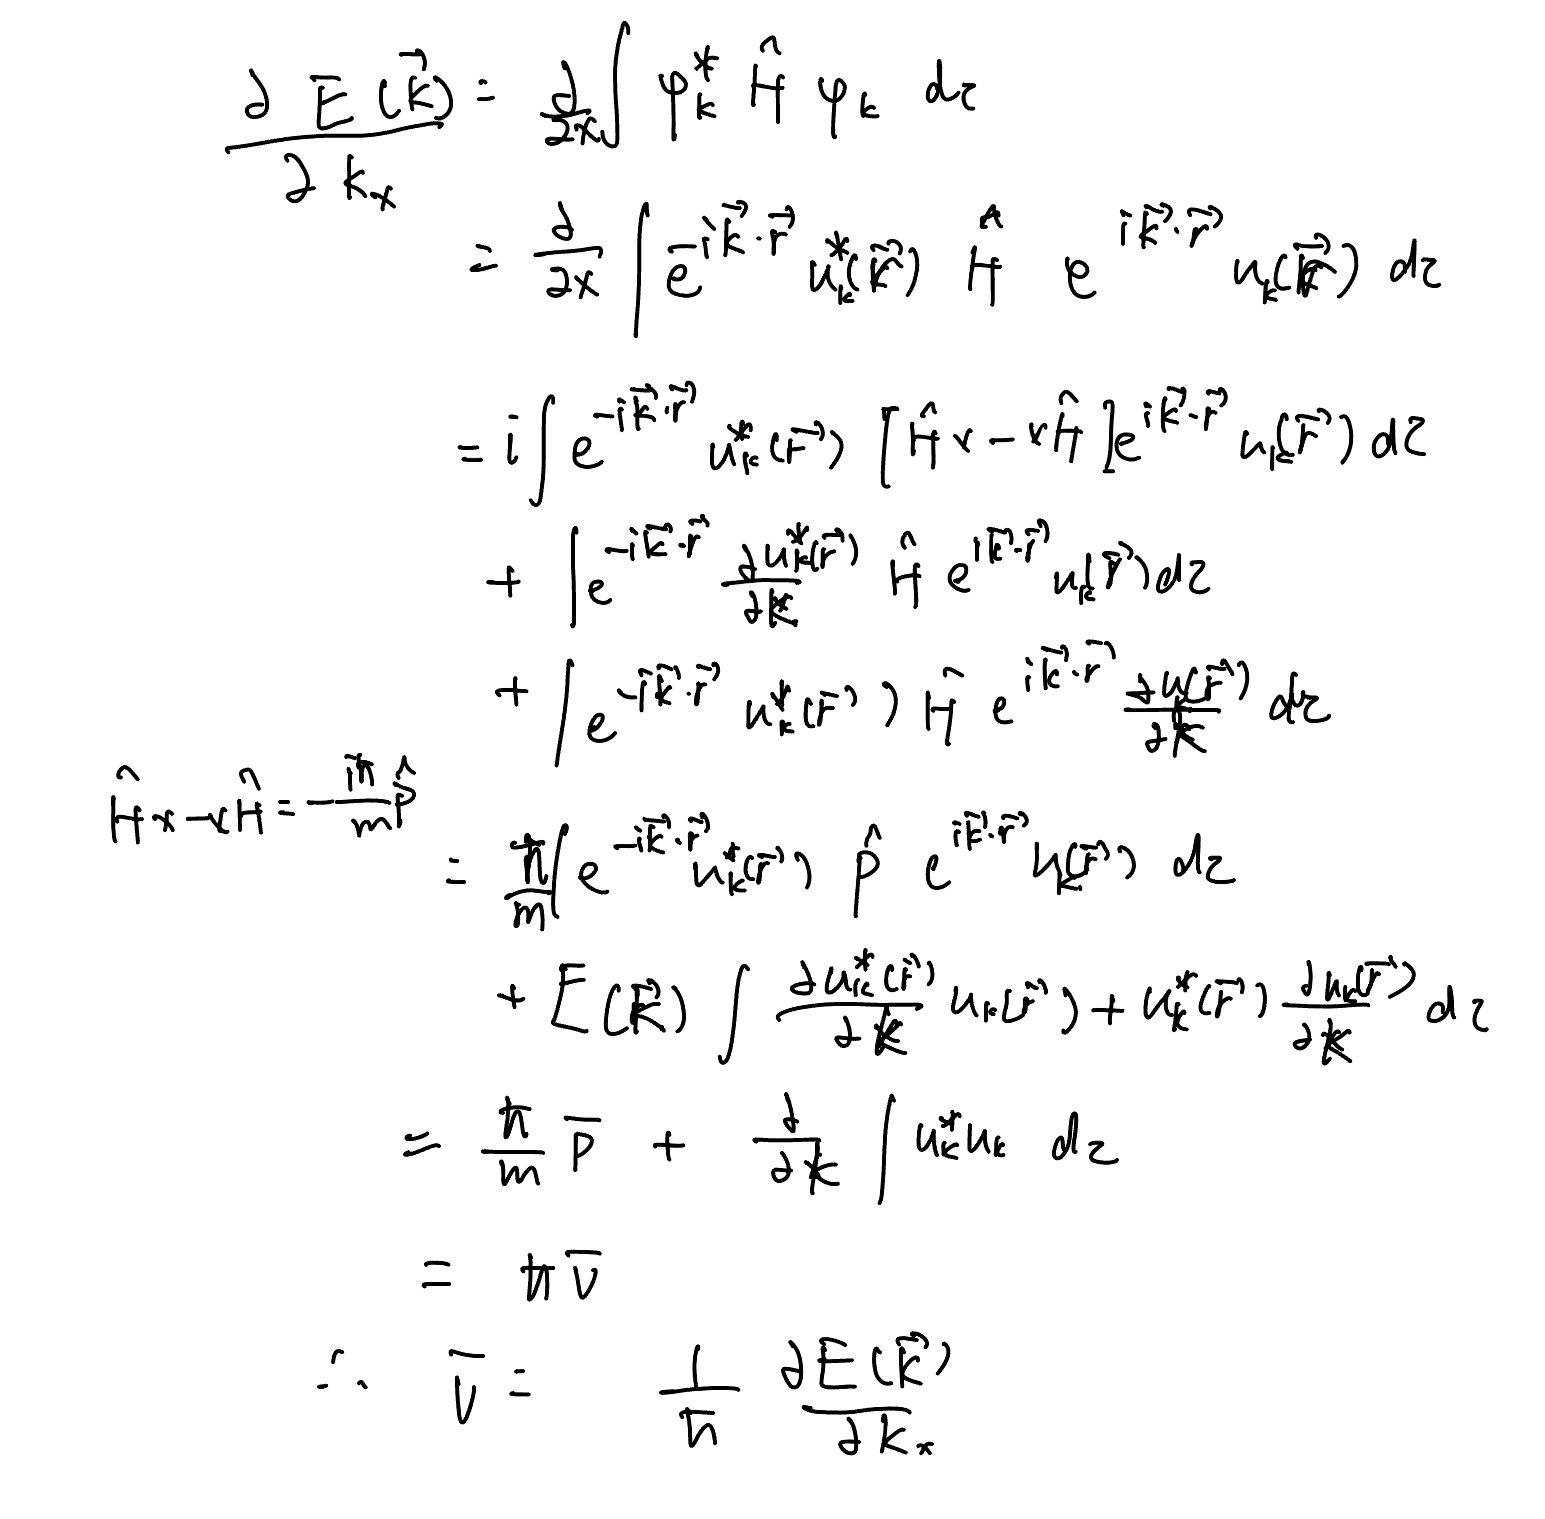 ∂E(k⃗)/∂kₓ = ∂/∂x ∫ φₖ* Ĥ φₖ dτ
= ∂/∂x ∫ e^(-ik⃗·r⃗) uₖ*(r⃗) Ĥ e^(ik⃗·r⃗) uₖ(r⃗) dτ
= i ∫ e^(-ik⃗·r⃗) uₖ*(r⃗) [Ĥx - xĤ] e^(ik⃗·r⃗) uₖ(r⃗) dτ
+ ∫ e^(-ik⃗·r⃗) ∂uₖ*(r⃗)/∂k Ĥ e^(ik⃗·r⃗) uₖ(r⃗) dτ
+ ∫ e^(-ik⃗·r⃗) uₖ*(r⃗) ) Ĥ e^(ik⃗·r⃗) ∂uₖ(r⃗)/∂k dτ
Ĥx - xĤ = -iħ/m p̂
= ħ/m ∫ e^(-ik⃗·r⃗) uₖ*(r⃗) p̂ e^(ik⃗·r⃗) uₖ(r⃗) dτ
+ E(k⃗) ∫ ∂uₖ*(r⃗)/∂k uₖ(r⃗) + uₖ*(r⃗) ∂uₖ(r⃗)/∂k dτ
= ħ/m p̄ + ∂/∂k ∫ uₖ*uₖ dτ
= ħ v̄
∴ v̄ = 1/ħ ∂E(k⃗)/∂kₓ